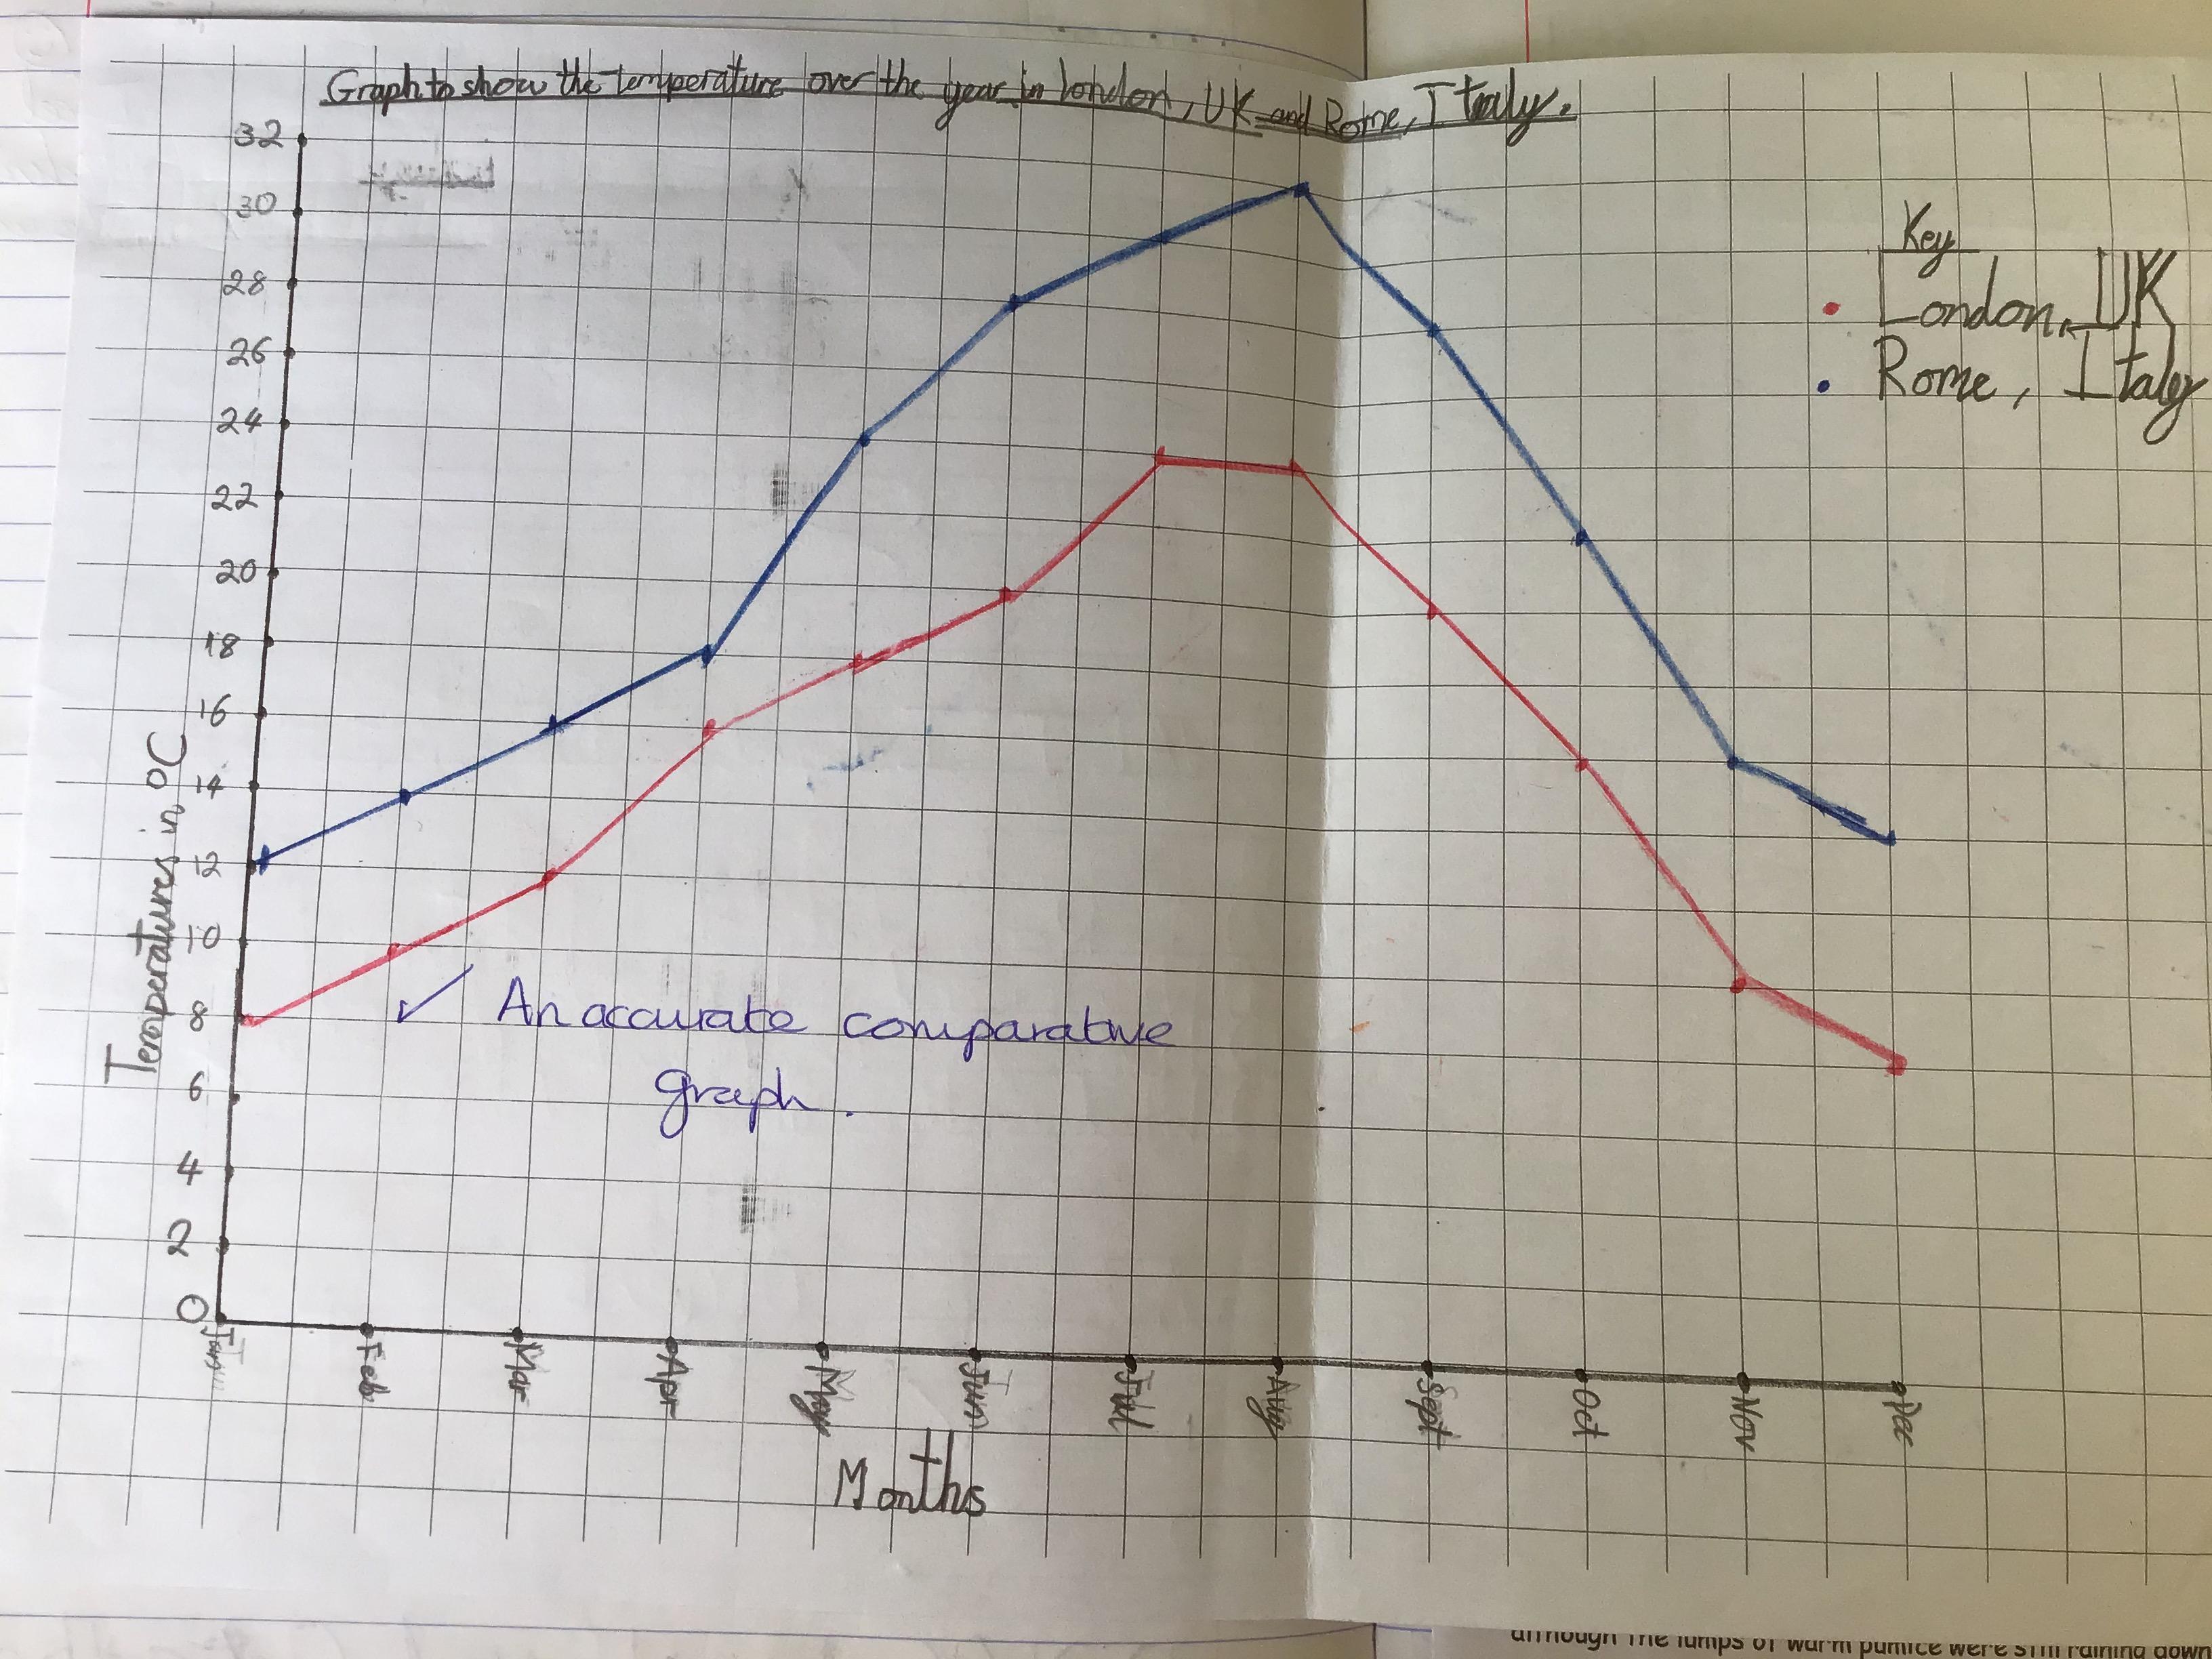 Graph to show the temperature over the year in London, UK and Rome, Italy.
32
30
28
26
24
22
20
18
16
14
12
10
8
6
4
2
0
Temperatures in °C
Key
London, UK
Rome, Italy
✓ An accurate comparative
graph.
Jan Feb Mar Apr May Jun Jul Aug Sept Oct Nov Dec
Months
although the lumps of warm pumice were still raining down